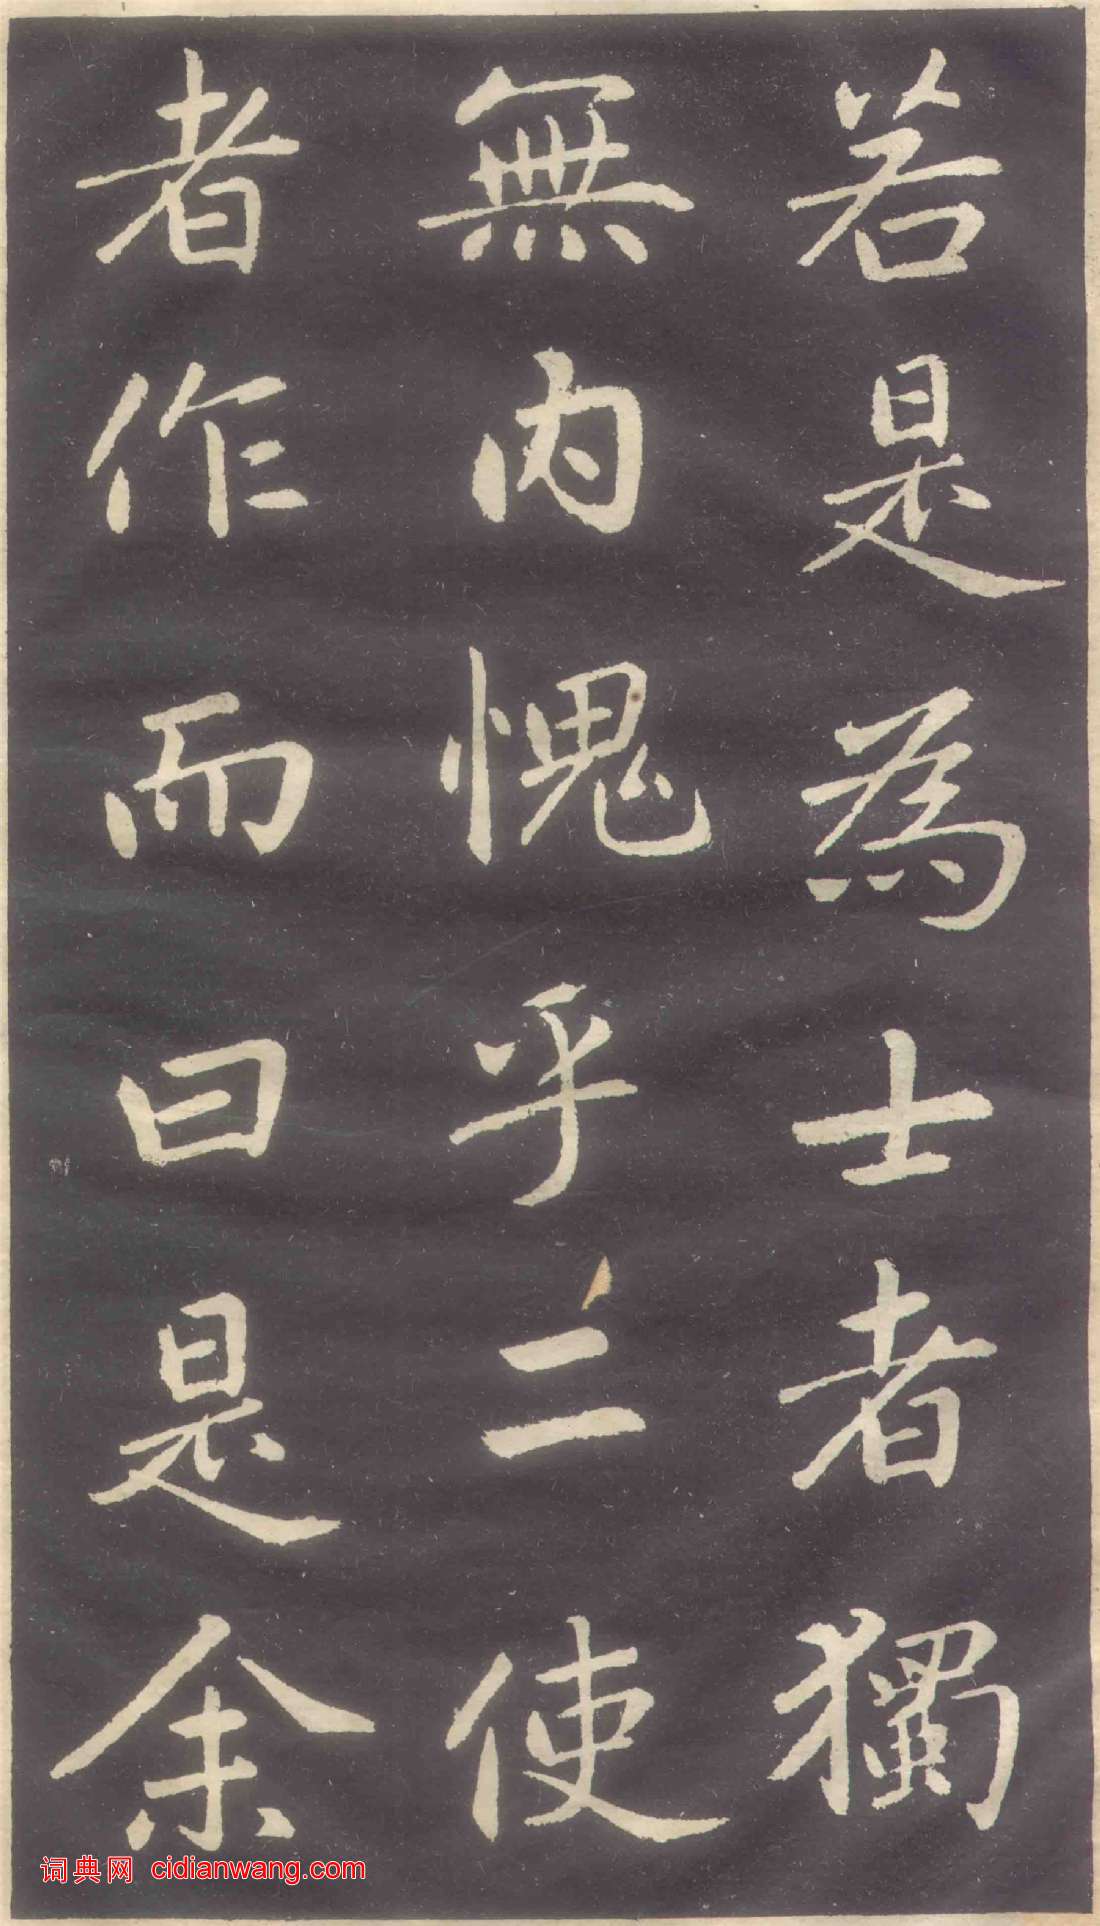 若是為士者獨
無內愧乎二使
者作而曰是余
词典网 cidianwang.com